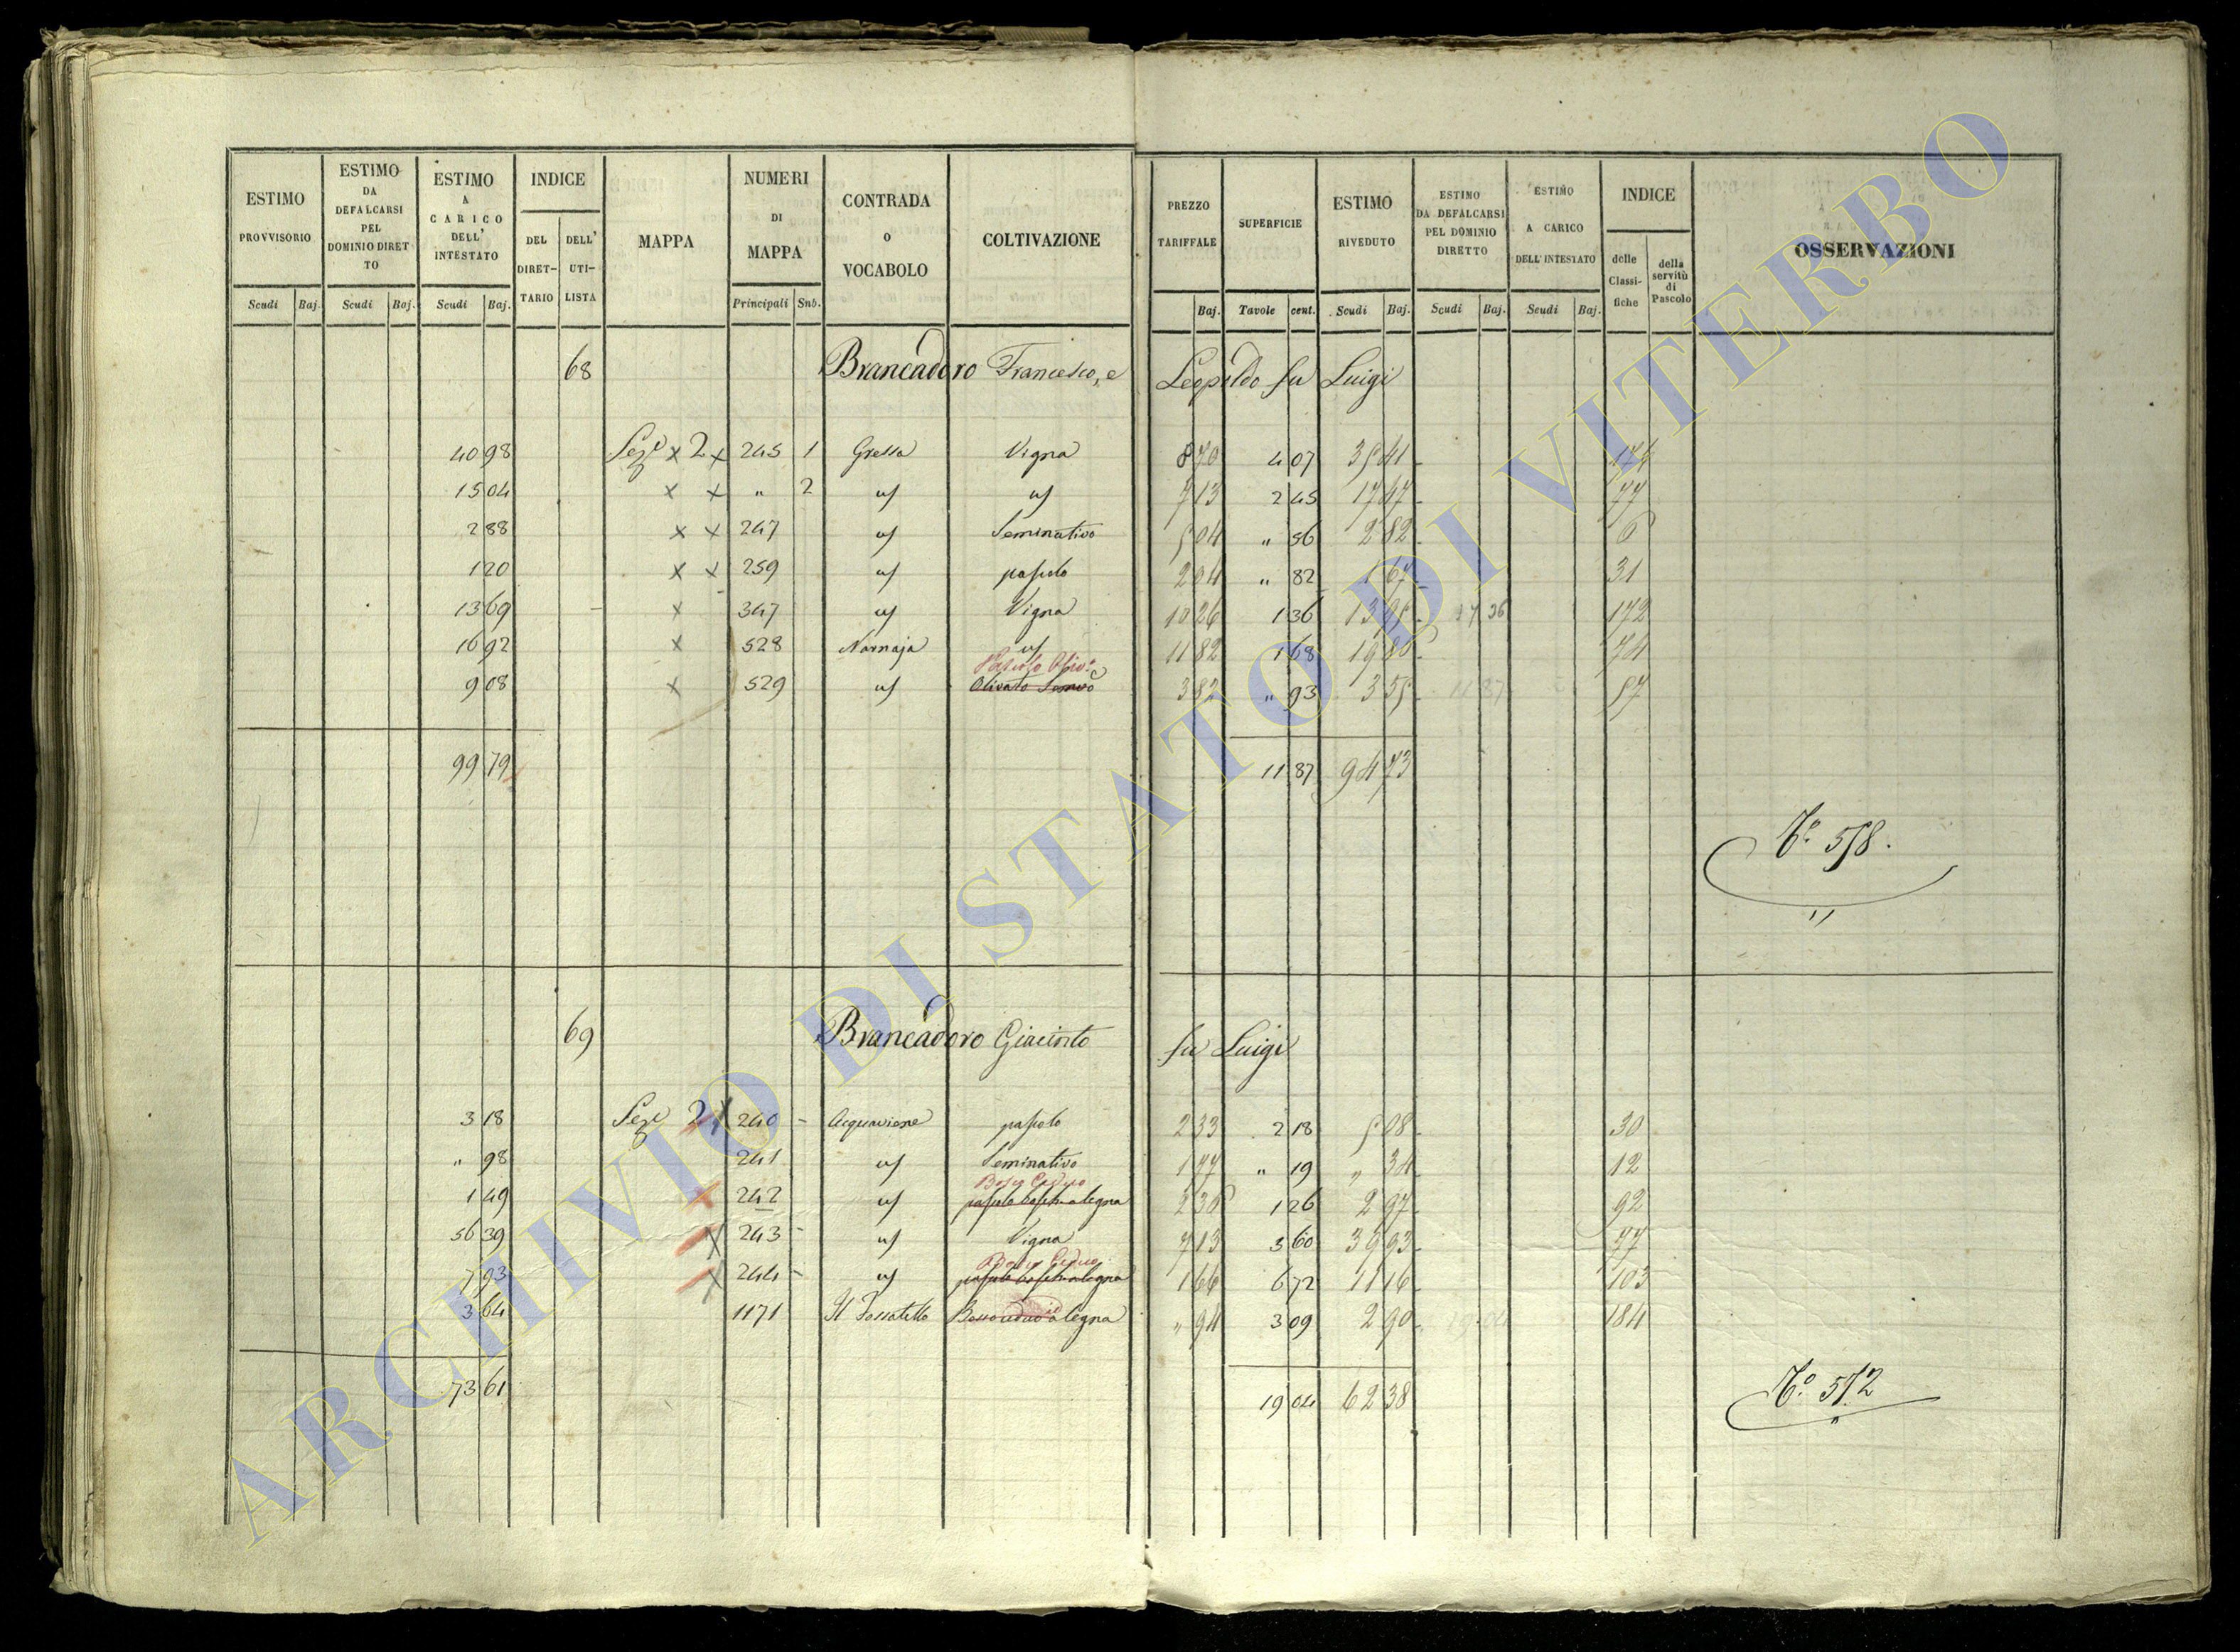 ESTIMO PROVVISORIO Scudi Baj. ESTIMO DA DEFALCARSI PEL DOMINIO DIRETTO Scudi Baj. ESTIMO A CARICO DELL' INTESTATO Scudi Baj. INDICE DEL DIRET-TARIO DELL' UTI-LISTA MAPPA NUMERI DI MAPPA Principali Sub. CONTRADA O VOCABOLO COLTIVAZIONE PREZZO TARIFFALE Baj. SUPERFICIE Tavole cent. ESTIMO RIVEDUTO Scudi Baj. ESTIMO DA DEFALCARSI PEL DOMINIO DIRETTO Scudi Baj. ESTIMO A CARICO DELL' INTESTATO Scudi Baj. INDICE delle Classi-fiche della servitù di Pascolo OSSERVAZIONI
68 Brancadoro Francesco, e Leopoldo fu Luigi
40 98 Seze x 2 x 245 1 Vigna 8 70 4 07 35 41 174
15 04 x x " 2 7 13 2 45 17 47 77
2 88 x x 247 Seminativo 5 04 " 56 2 82 6
1 20 x x 259 pascolo 2 04 " 82 1 67 31
13 69 x 347 Vigna 10 26 1 36 13 95 172
16 92 x 528 Nornaja 11 82 1 68 19 86 74
9 08 x 529 Pascolo Olivo Olivato 3 82 " 93 3 55 57
99 79 11 87 94 73
No. 558.
69 Brancadoro Giacinto fu Luigi
3 18 Seze 2 x 240 Acquavione pascolo 2 33 2 18 5 08 30
" 98 241 Seminativo 1 77 " 19 " 34 12
1 49 x 242 Bosco Ceduo 2 36 1 26 2 97 92
56 39 x 243 Vigna 7 13 3 60 39 93 77
7 93 x 244 Bosco Ceduo 1 66 6 72 11 16 103
3 64 1171 Il Fossatello Bosco ceduo a legna " 94 3 09 2 90 184
73 61 19 04 62 38
No. 572
ARCHIVIO DI STATO DI VITERBO